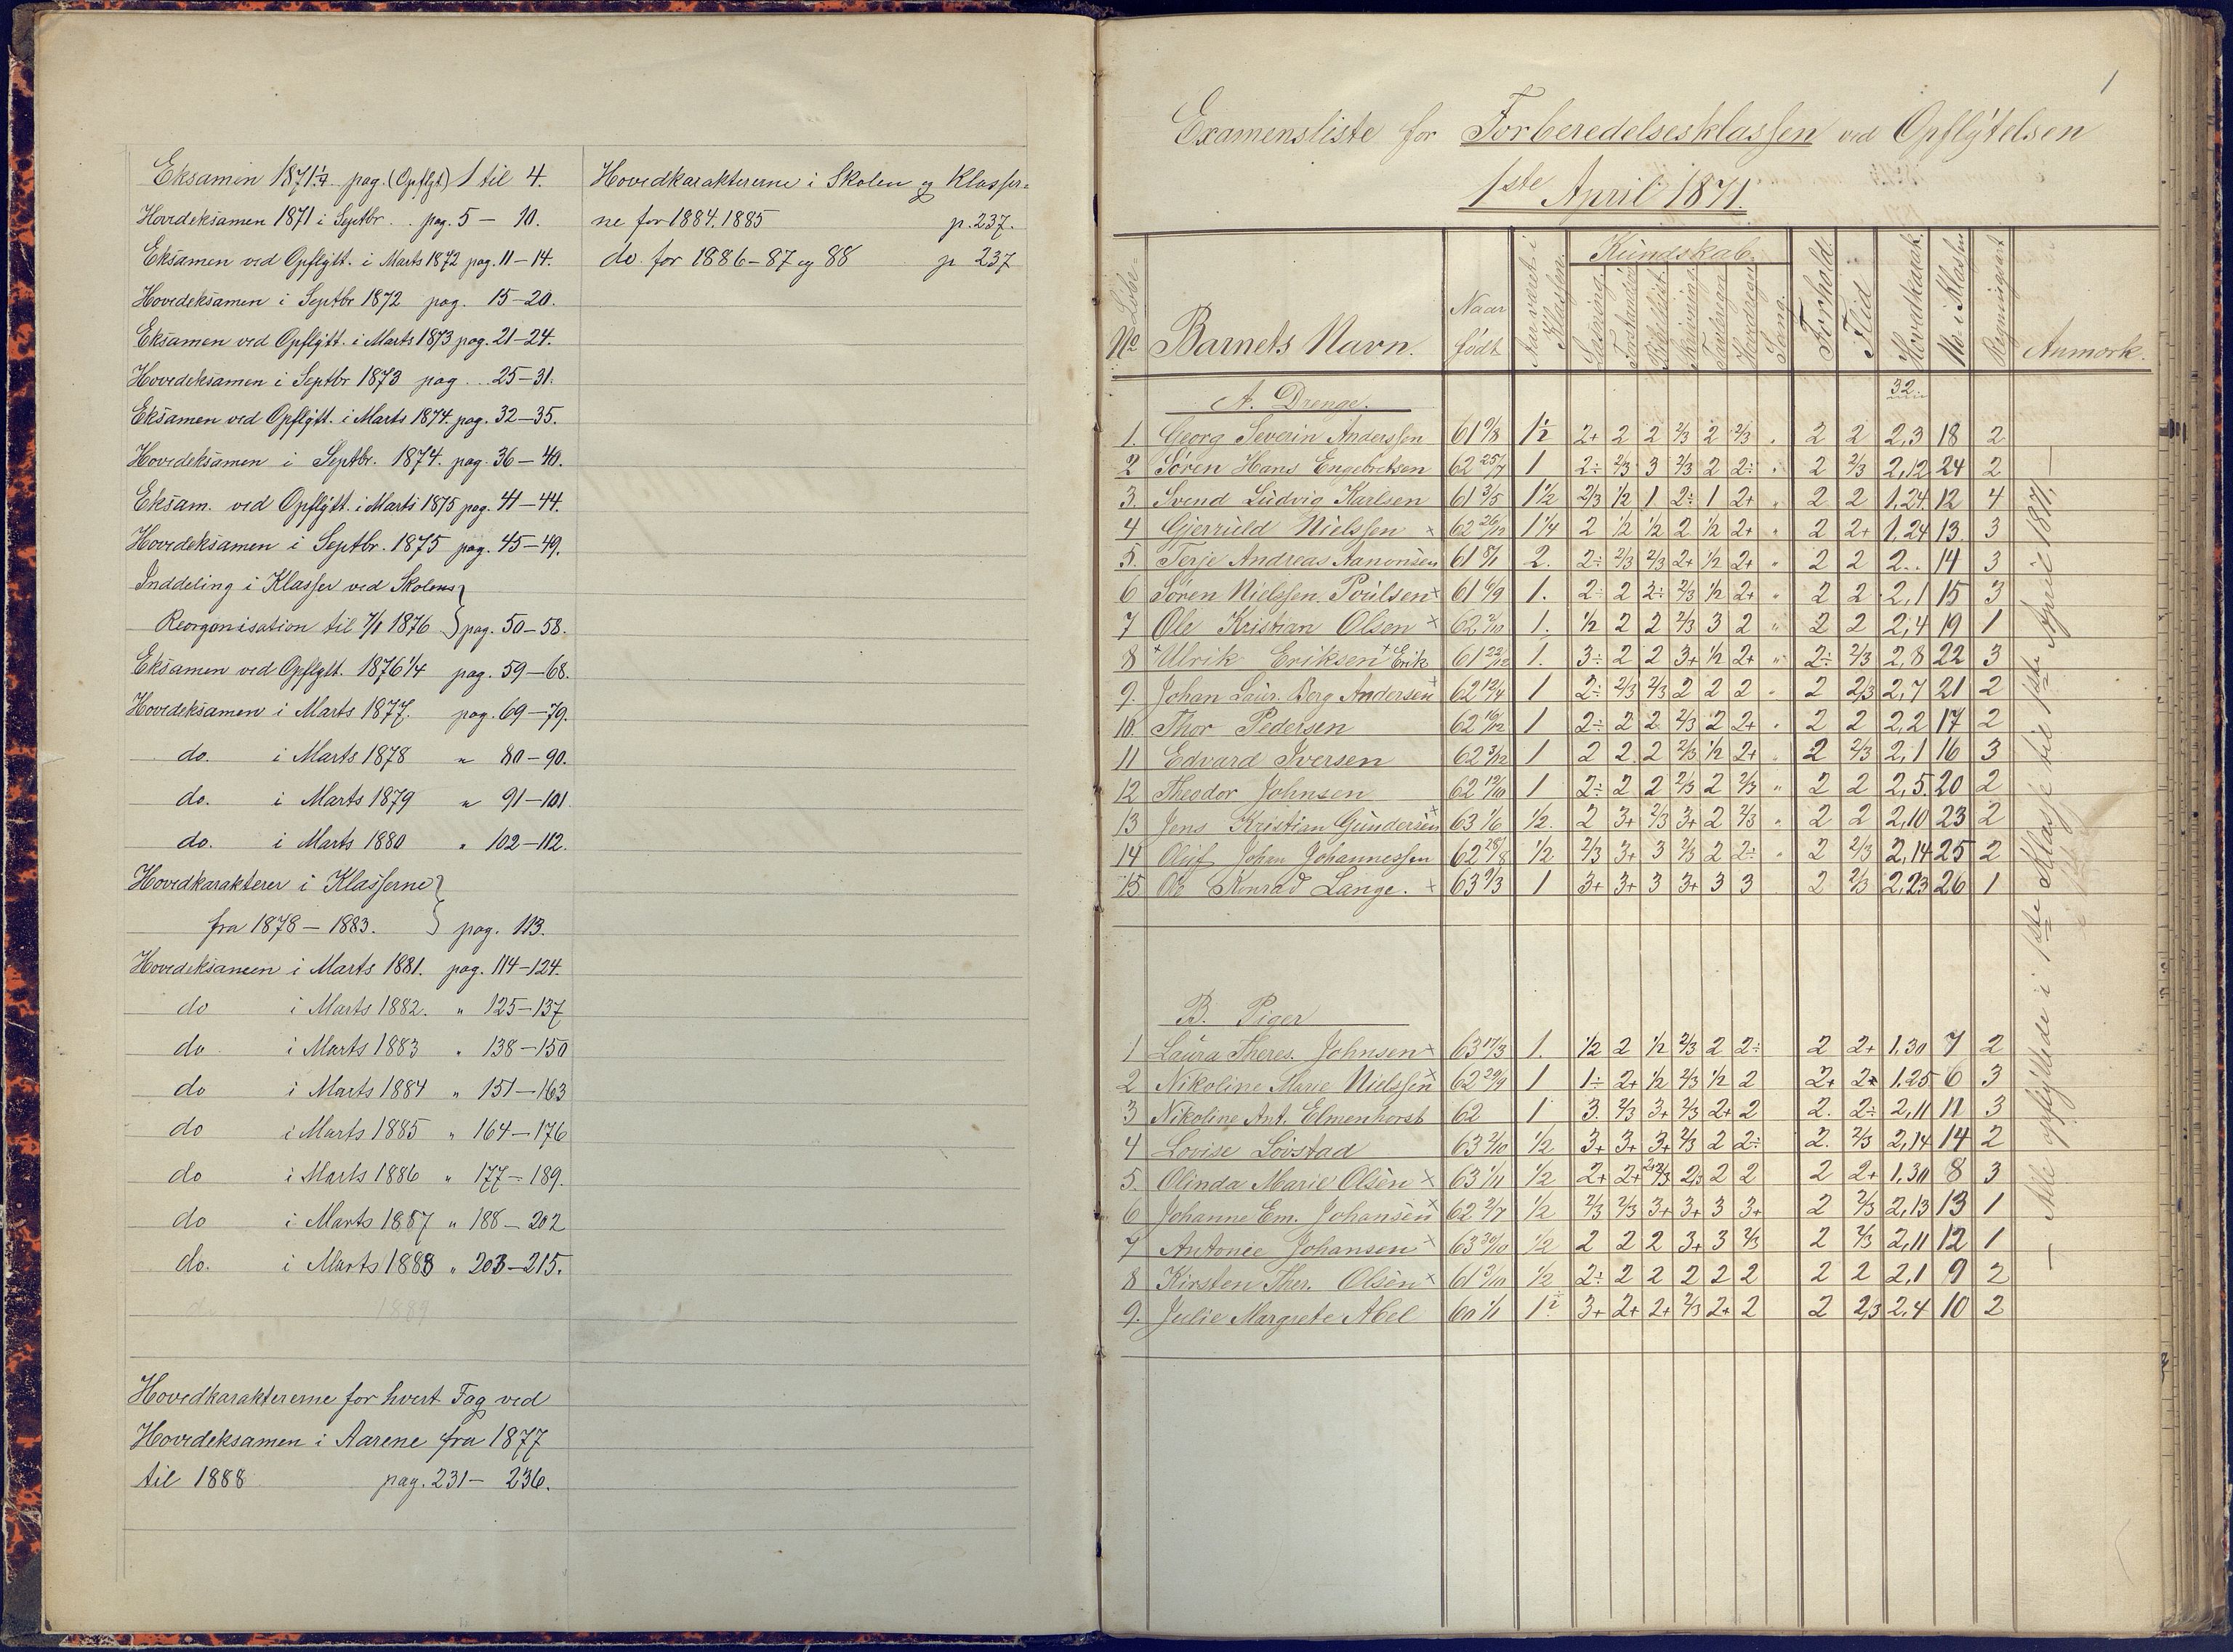 Eksamen 1871 1/4 pag. (Opflyt) 1 til 4.
Hovedeksamen 1871 i Septbr. . pag. 5 — 10.
Eksamen ved Opflytt. i Marts 1872 pag. 11 — 14.
Hovedeksamen i Septbr 1872 pag. 15 — 20.
Eksamen ved Opflytt. i Marts 1873 pag. 21 — 24.
Hovedeksamen i Septbr 1873 pag. .. 25 — 31.
Eksamen ved Opflytt. i Marts 1874. pag. 32 — 35.
Hovedeksamen i Septbr. 1874. pag. 36 — 40.
Eksam. ved Opflytt. i Marts 1875 pag. 41 — 44.
Hovedeksamen i Septbr. 1875 pag. 45 — 49.
Inddeling i Klasser ved Skolens
Reorganisation til 1/1 1876 } pag. 50 — 58.
Eksamen ved Opflytt. 1876 1/4 pag. 59 — 68.
Hovedeksamen i Marts 1877. pag. 69 — 79.
do. i Marts 1878 " 80 — 90.
do. i Marts 1879 " 91 — 101
do. i Marts 1880 " 102 — 112.
Hovedkarakterer i Klasserne
fra 1878 — 1883. } pag. 113.
Hovedeksamen i Marts 1881. pag. 114 — 124.
do i Marts 1882. " 125 — 137
do i Marts 1883 " 138 — 150
do i Marts 1884 " 151 — 163
do i Marts 1885 " 164 — 176
do i Marts 1886 " 177 — 189.
do i Marts 1887 " 188 — 202
do. i Marts 1888 " 203 — 215.
do 1889
Hovedkaraktererne for hvert Fag ved
Hovedeksamen i Aarene fra 1877
til 1888 pag. 231 — 236.
Hovedkaraktererne i Skolen og Klasser=
ne for 1884. 1885 p. 237.
do. for 1886 — 87 og 88 p 237
1
Examensliste for Forberedelsesklassen ved Opflytelsen
1ste April 1871.
Löbe= No Barnets Navn. Naar födt Aar været i Klassen. Kundskab. Læsning Forstandsöv Bibelhist. Regning Tavleregn Hovedregn Sang. Forhold. Flid Hovedkarak. No i Klassen Anmærk.
A. Drenge. 32.
1. Georg Severin Anderssen 61 9/8 1 1/2 2+ 2 2 2/3 2 2/3 " 2 2 2,3 18 2
2 Sören Hans Engebretsen 62 25/7 1 2÷ 2/3 3 2/3 2 2÷ " 2 2/3 2,12 24 2
3. Svend Ludvig Karlsen 61 3/5 1 1/2 2/3 1/2 1 2÷ 1 2+ " 2 2 1,24 12 4
4 Gjerruld Nielssen × 62 26/12 1 1/4 2 1/2 1/2 2 1/2 2+ " 2 2+ 1,24 13. 3
5. Terje Andreas Aanonsen 61 8/1 2. 2÷ 2/3 2/3 2+ 1/2 2+ " 2 2 2.. 14 3
6 Sören Nielssen Poulsen × 61 6/9 1. 2÷ 2 2÷ 2/3 1/2 2+ " 2 2 2,1 15 3
7 Ole Kristian Olsen × 62 2/10 1. 1/2 2 2 2/3 3 2 " 2 2 2,4 19 1
8 × Ulrik Eriksen + Erik 61 22/12 1. 3÷ 2 2 3+ 1/2 2+ " 2÷ 2/3 2,8 22 3
9. Johan Laur. Berg Andersen 62 12/4 1 2÷ 2/3 2/3 2 2 2 " 2 2/3 2,7 21 2
10. Thor Pedersen 62 16/12 1 2÷ 2 2 2/3 2 2+ " 2 2 2,2 17 2
11 Edvard Iversen 62 3/12 1 2 2 2 2/3 1/2 2+ " 2 2/3 2,1 16 3
12 Theodor Johnsen 62 12/10 1 2÷ 2 2 2/3 2 2/3 " 2 2 2,5. 20 2
13 Jens Kristian Gundersen × 63 1/6 1/2. 2 3+ 2/3 3+ 2 2/3 " 2 2 2,10 23 2
14 Oluf Johan Johannessen 62 28/8 1/2. 2/3 3+ 3 2/3 2 2÷ " 2 2/3 2,14 25 2
15 Ole Konrad Lange. × 63 9/3 1 3+ 3+ 3 3+ 3 3 2 2/3 2,23 26 1
B. Piger
1 Laura Theres. Johnsen × 63 17/3 1. 1/2 2 1/2 2/3 2 2÷ 2 2+ 1.30 7 2
2 Nikoline Marie Nielssen × 62 29/9 1 1÷ 2+ 1/2 2/3 1/2 2 2+ 2+ 1.25 6 3
3 Nikoline Ant. Elmenhorst 62 1 3. 2/3 3+ 2/3 2+ 2 2. 2÷ 2,11 11 3
4 Lovise Lövstad 63 2/10 1/2 3+ 3+ 3+ 2/3 2 2÷ 2. 2/3 2,14 14 2
5. Olinda Marie Olsen × 63 1/11 1/2 2+ 2+ 2/3 2/3 2 2 2 2+ 1.30 8 3
6 Johanne Em. Johansen × 62 2/7 1/2 2/3 2/3 3+ 3+ 3 3+ 2 2/3 2,13 13 1
7 Antonie Johansen × 63 30/10 1/2 2 2 2 3+ 3 2/3 2 2/3 2,11 12 1
8 Kirsten Ther. Olsen × 61 3/10 1/2 2÷ 2 2 2 2 2 2 2 2,1 9 2
9. Julie Margrete Abel 60 1/11 1 1/2 3+ 2+ 2+ 2/3 2+ 2 2 2/3 2,4 10 2
— Alle opflyttede i 1ste Klasse til 1ste April 1871. —